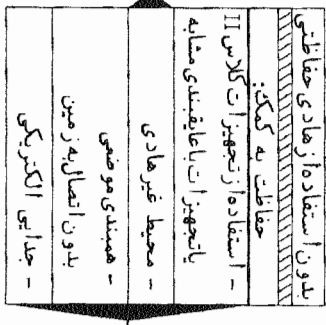 بدون استفاده از هادی حفاظتی
حفاظت به کمک:
- استفاده از تجهیزات کلاس II
یا تجهیزات با عایقبندی مشابه
- محیط غیر هادی
- همبندی موضعی
بدون اتصال به زمین
- جدایی الکتریکی